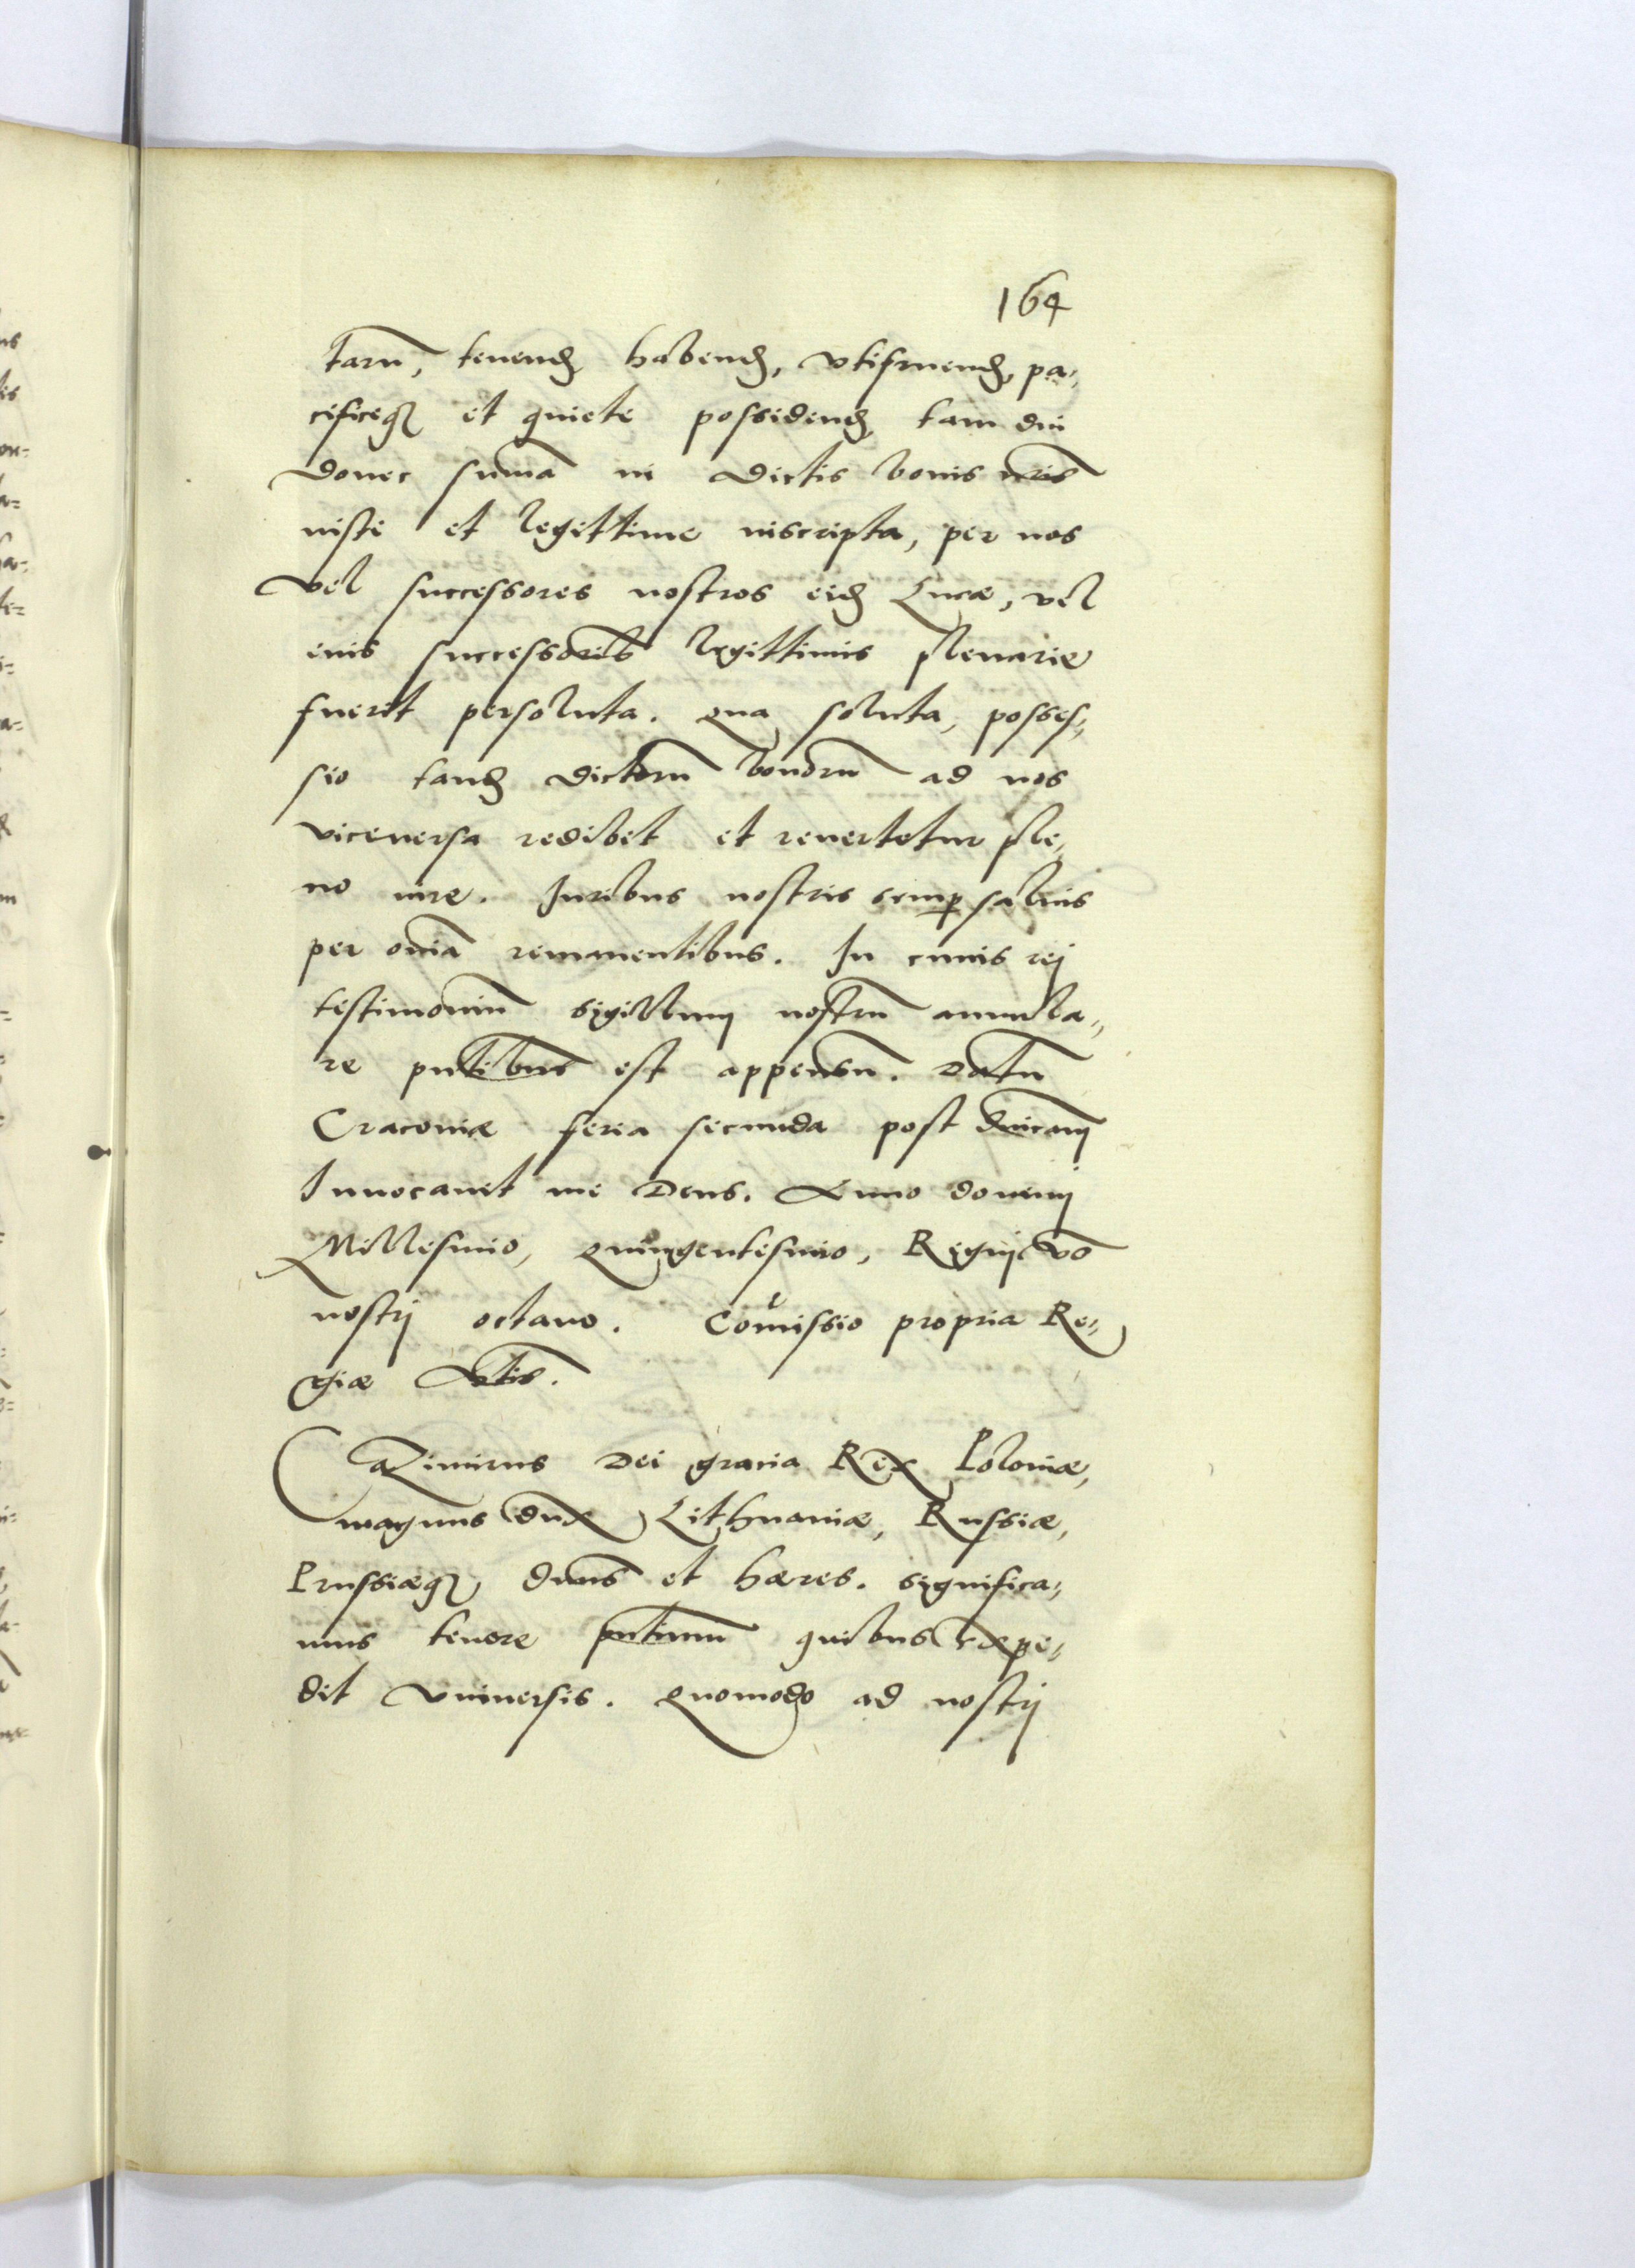 164
tarū, tenend̨ habend̨, vtifruend̨, pa-
cificeq̨ et quiete possidend̨ tam diu
donec sum̄a in dictis bonis nr̄is
iuste et legittime inscripta, per nos
vel successores nostros eid̨ Lucæ, vel
eius successorib̄ legittimis plenarie
fuerit persoluta. Qua soluta, posses-
sio tand̨ dictorū bonorū ad nos
viceuersa redibet et reuertetur ple-
no iure. Iuribus nostris semp̱ saluis
per om̄ia remanentibus. In cuius rej
testimoniū sigillum nostrū annula-
re pn̄tibus est appensū. Datū
Cracouiæ feria secunda post dn̄icam
Inuocauit me Deus. Anno dominj
Millesimo, Quingentesimo, Regnj vō
nostrj octauo. Com̄issio propria Re-
giæ Mt̄is.
CaZimirus Dei gracia Rex Poloniæ,
magnus dux Lithuaniæ, Russiæ,
Prussiæq̨ dn̄us et hæres. significa-
mus tenore pn̄tium quibus expe-
dit vniuersis. Quomodo ad nostrj